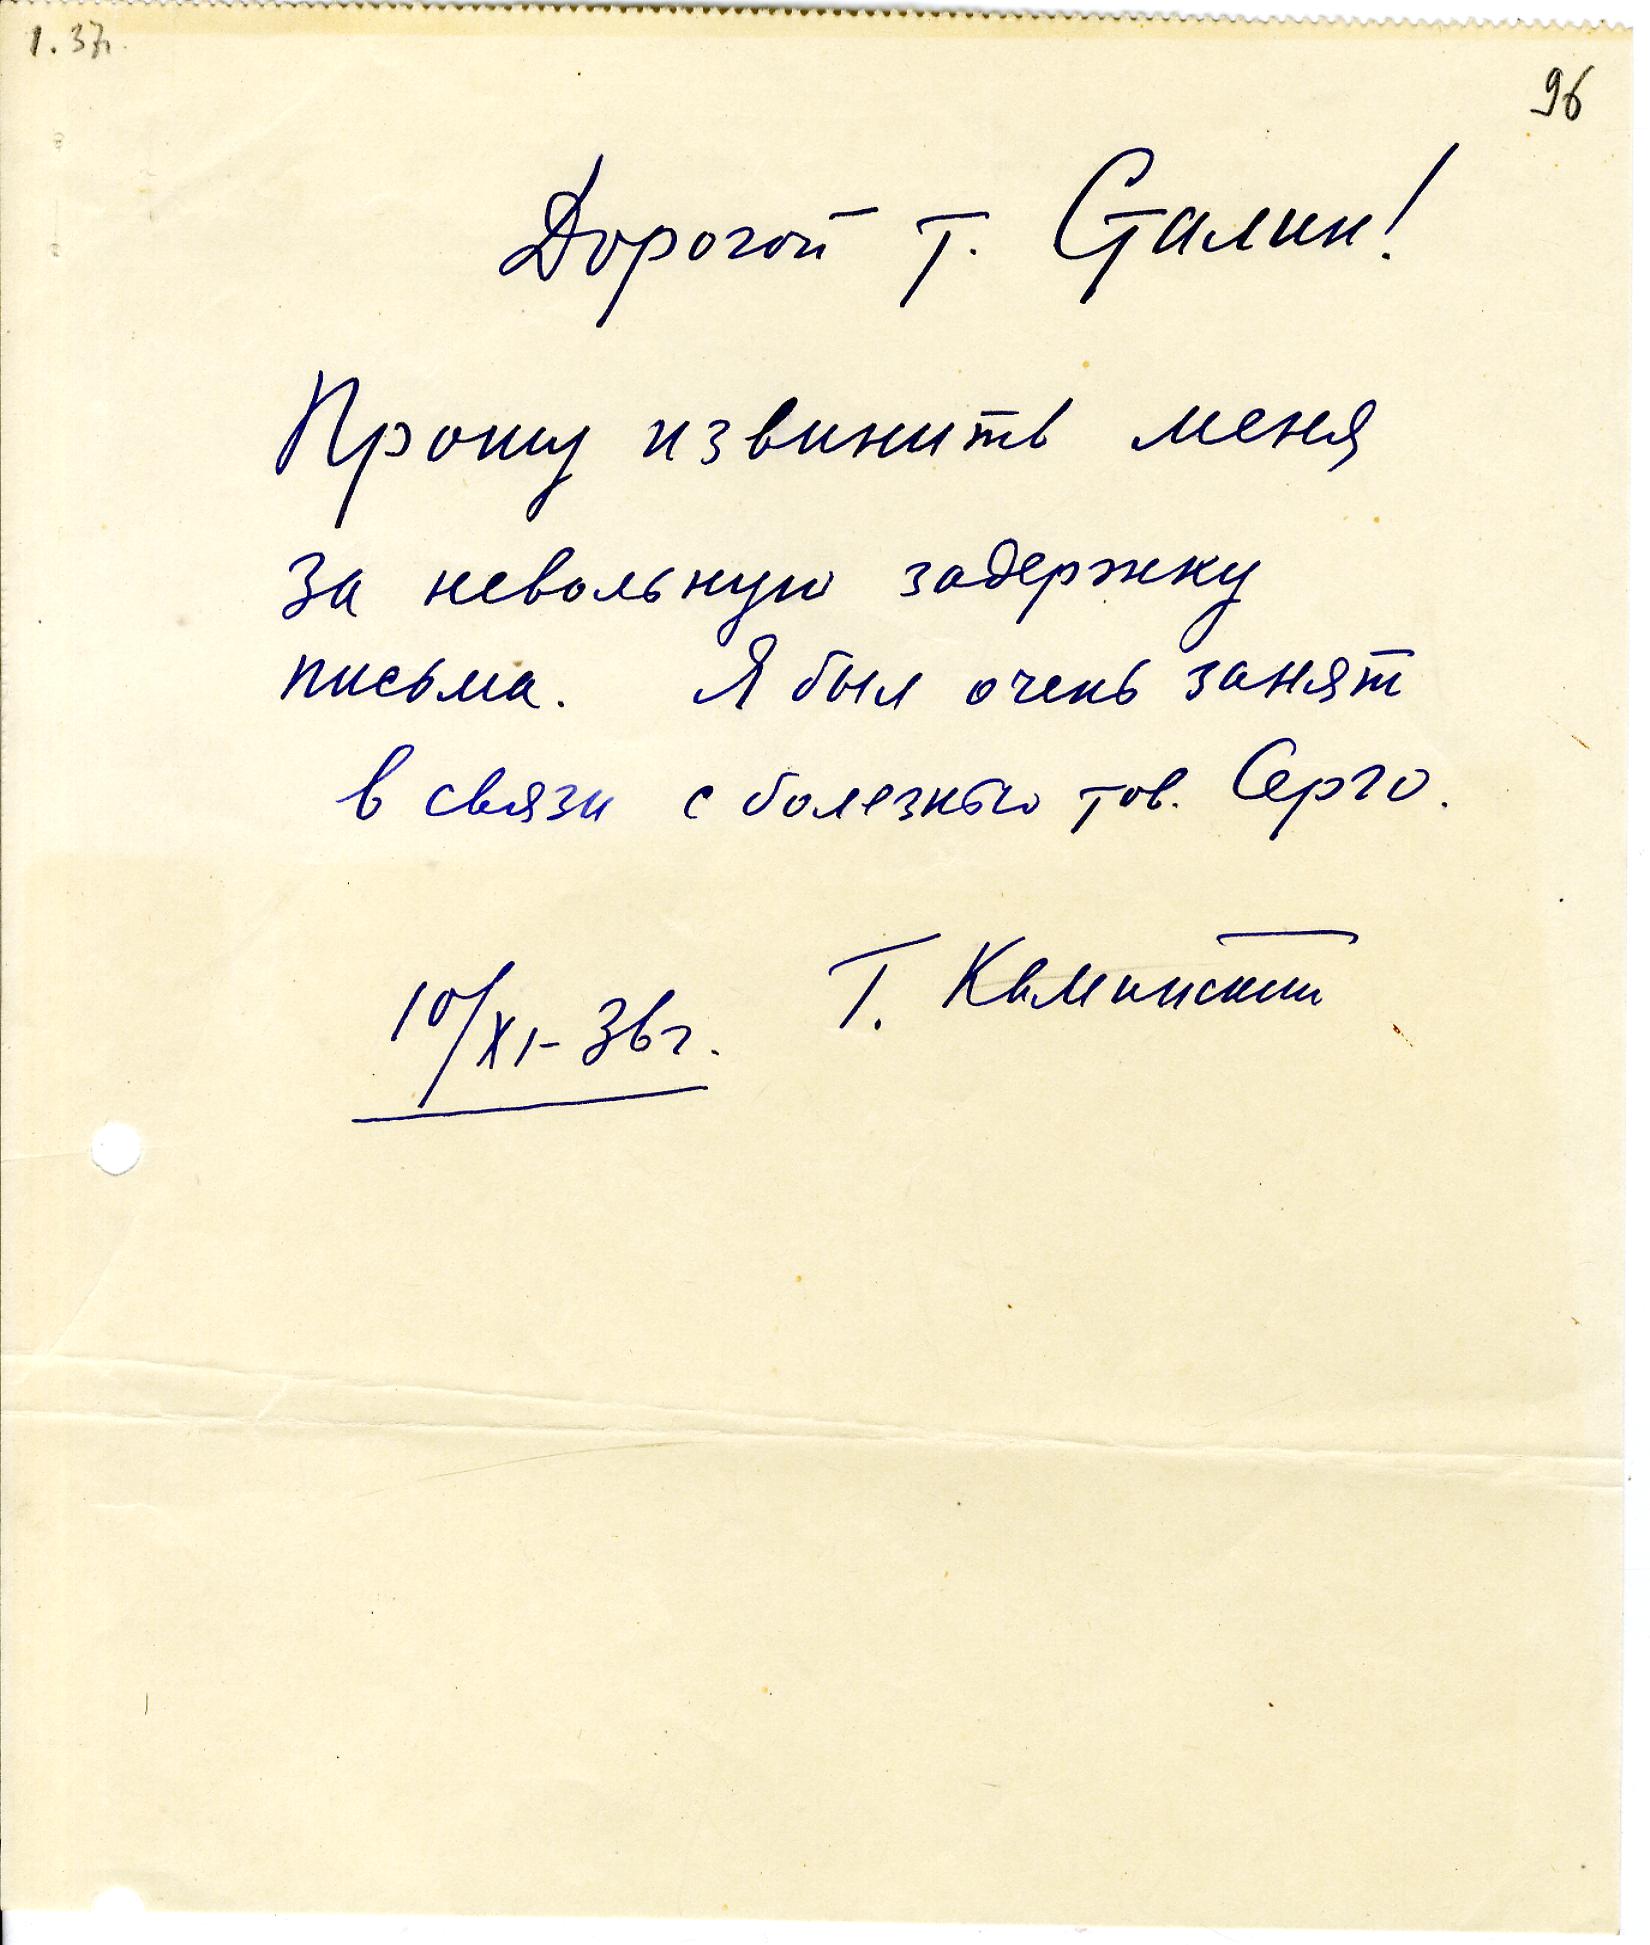 1.37г.
96
Дорогой т. Сталин!
Прошу извинить меня
за невольную задержку
письма. Я был очень занят
в связи с болезнью тов. Серго.
Г. Каминский
10/XI-36г.